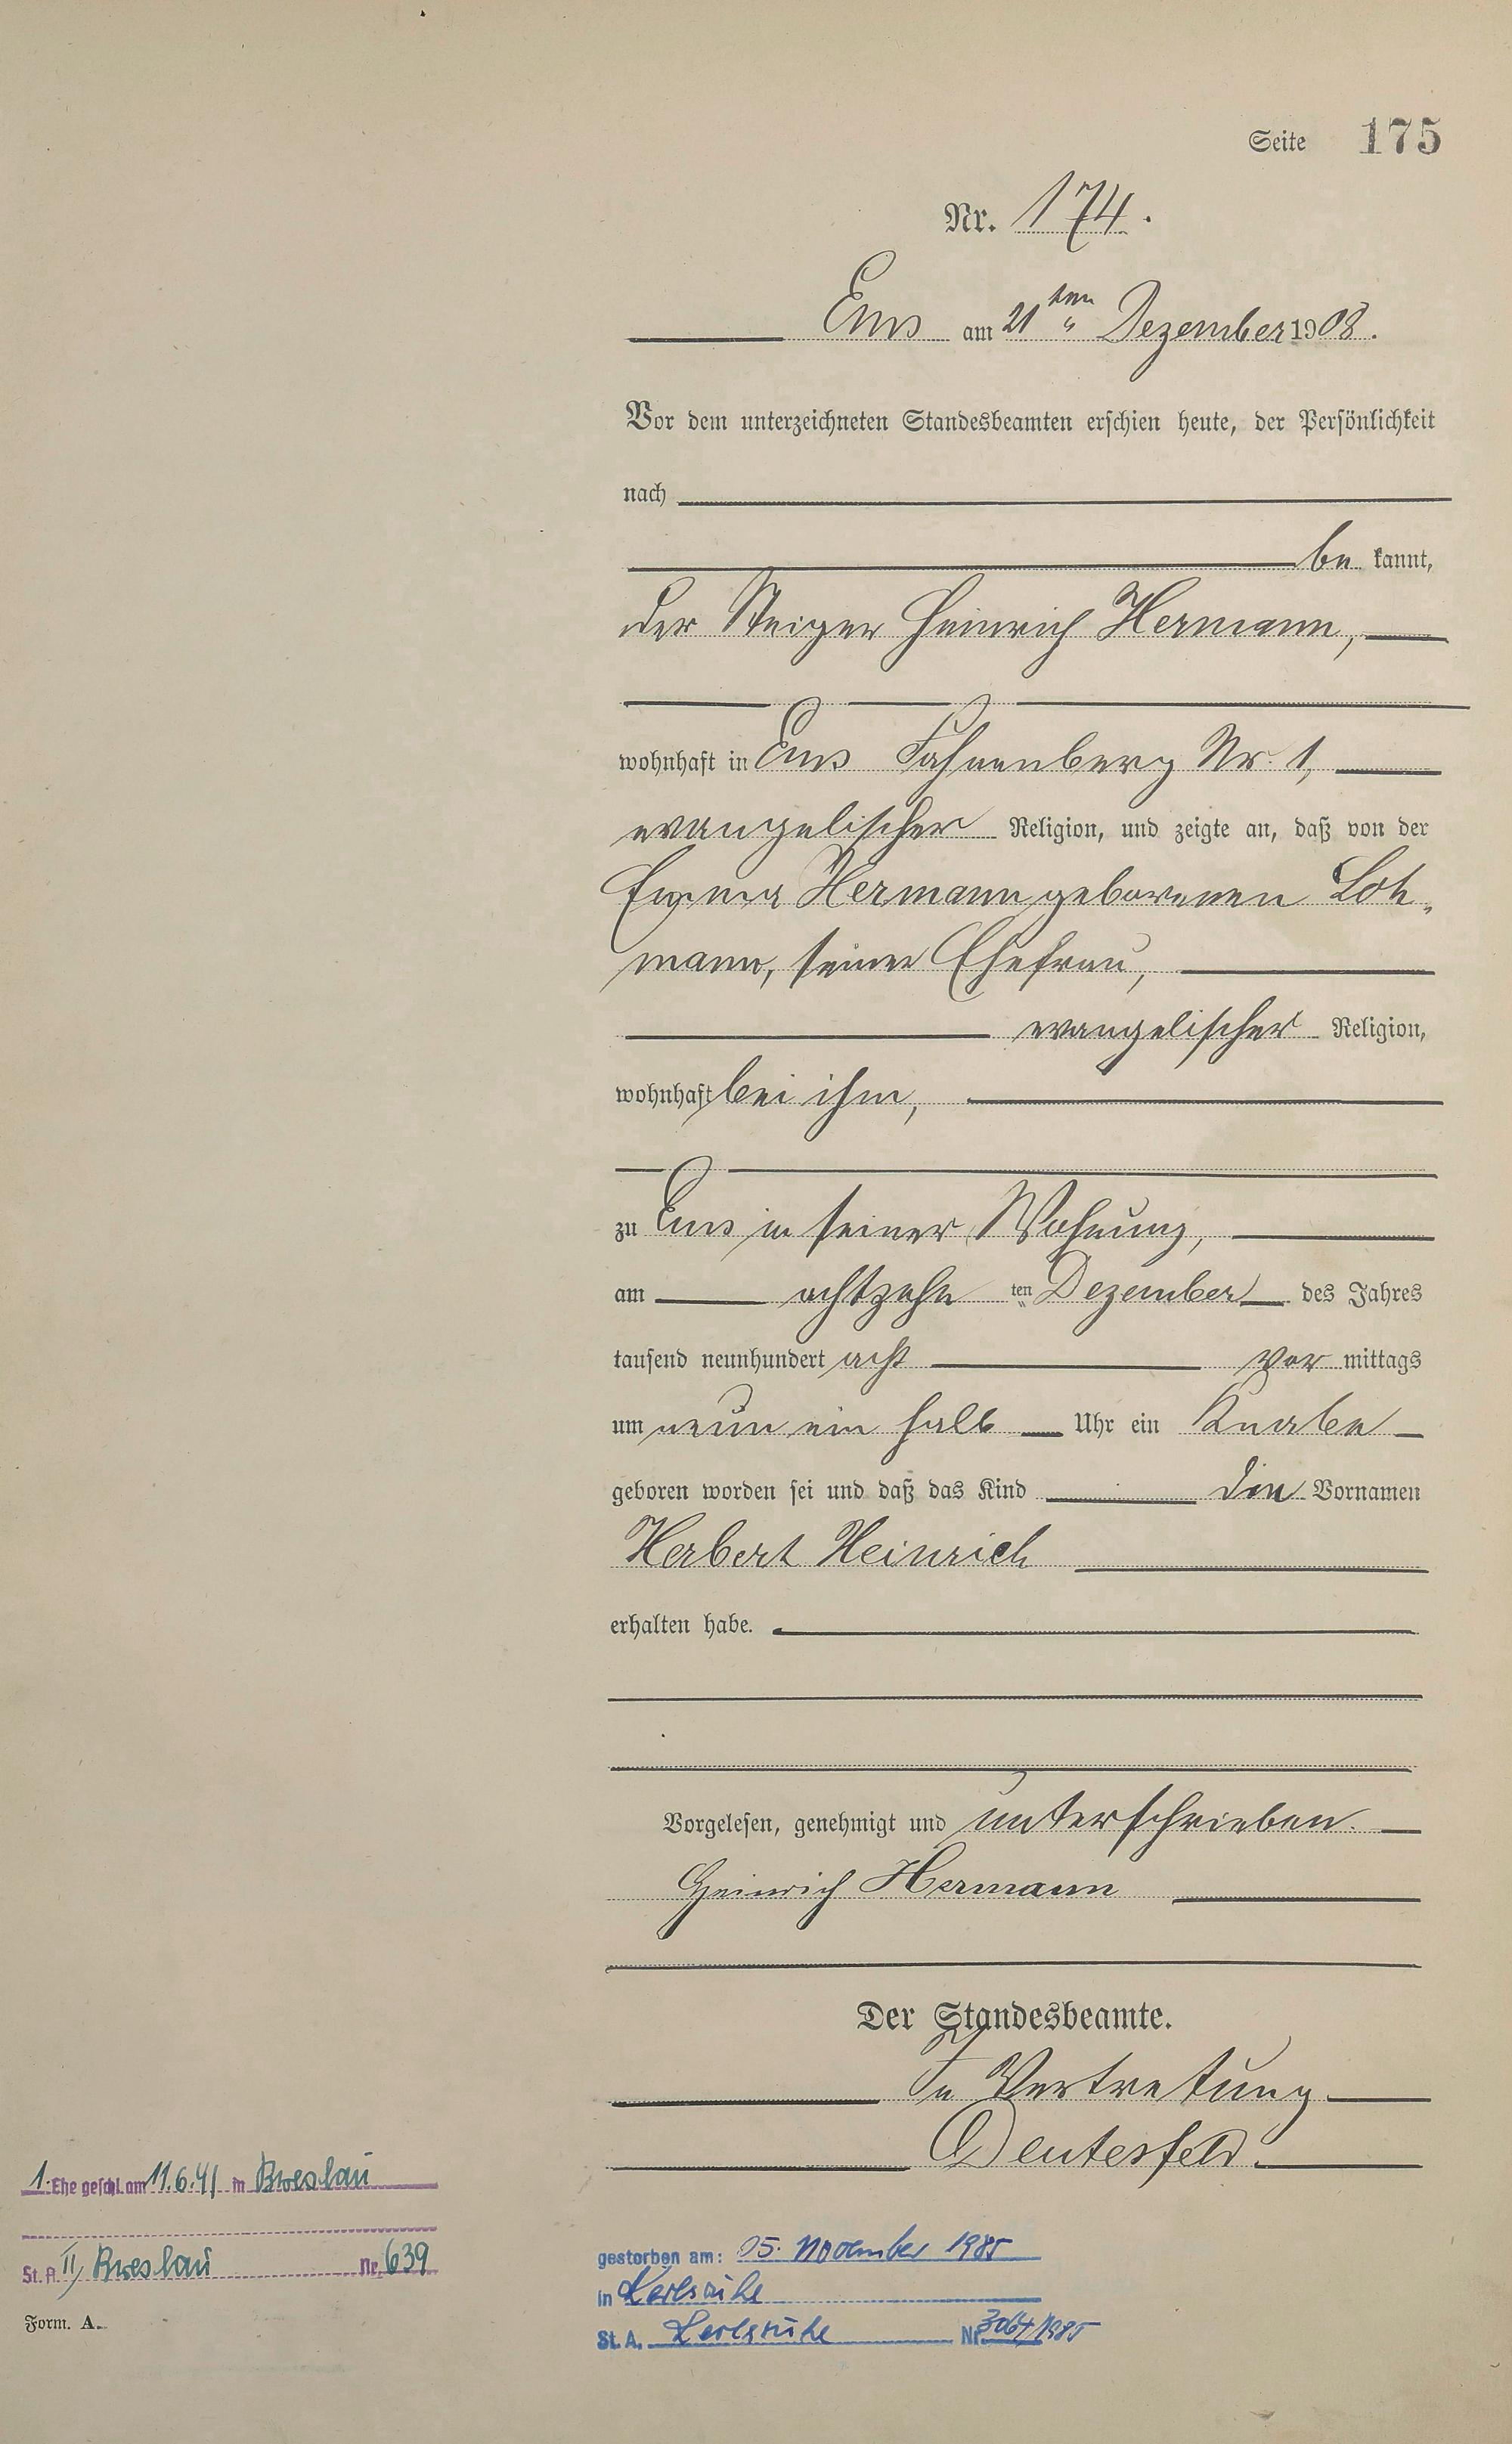 Seite 175
Nr. 174.
Ems am 21ten Dezember 1908.
Vor dem unterzeichneten Standesbeamten erschien heute, der Persönlichkeit
nach
be kannt,
der Steiger Heinrich Hermann,
wohnhaft in Ems Fahnenberg Nr. 1,
evangelischer Religion, und zeigte an, daß von der
Hermann geborenen Loh-
mann, seiner Ehefrau,
evangelischer Religion,
wohnhaft bei ihm,
zu Ems in seiner Wohnung,
am achtzehn ten Dezember des Jahres
tausend neunhundert acht vor mittags
um neun ein halb Uhr ein Knabe
geboren worden sei und daß das Kind die Vornamen
Herbert Heinrich
erhalten habe.
Vorgelesen, genehmigt und unterschrieben.
Heinrich Hermann
Der Standesbeamte.
In Vertretung
Deutesfeld.
1. Ehe geschl. am 11.6.41 in Breslau
St. A. II, Breslau Nr. 639
Form. A.
gestorben am: 05. November 1985
in Karlsruhe
St. A. Karlsruhe Nr. 3064/1985